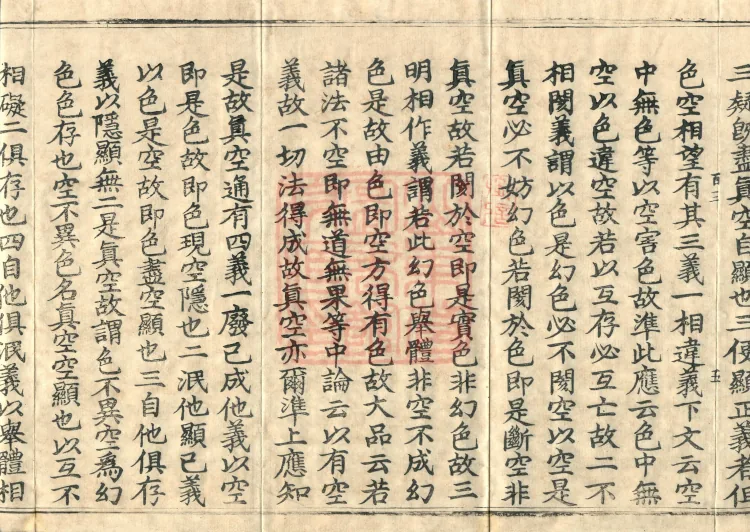 三疑即盡真空自顯也三便顯正義若但
色空相望有其三義一相違義下文云空
中無色等以空害色故準此應云色中無
空以色違空故若以互存必互亡故二不
相閡義謂以色是幻色必不閡空以空是
真空必不妨幻色若閡於色即是斷空非
真空故若閡於空即是實色非幻色故三
明相作義謂若此幻色舉體非空不成幻
色是故由色即空方得有色故大品云若
諸法不空即無道無果等中論云以有空
義故一切法得成故真空亦爾準上應知
是故真空通有四義一廢己成他義以空
即是色故即色現空隱也二泯他顯己義
以色是空故即色盡空顯也三自他俱存
義以隱顯無二是真空故謂色不異空為幻
色色存也空不異色名真空空顯也以互不
相礙二俱存也四自他俱泯義以舉體相